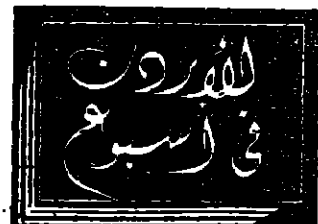 الأردن
في اسبوع